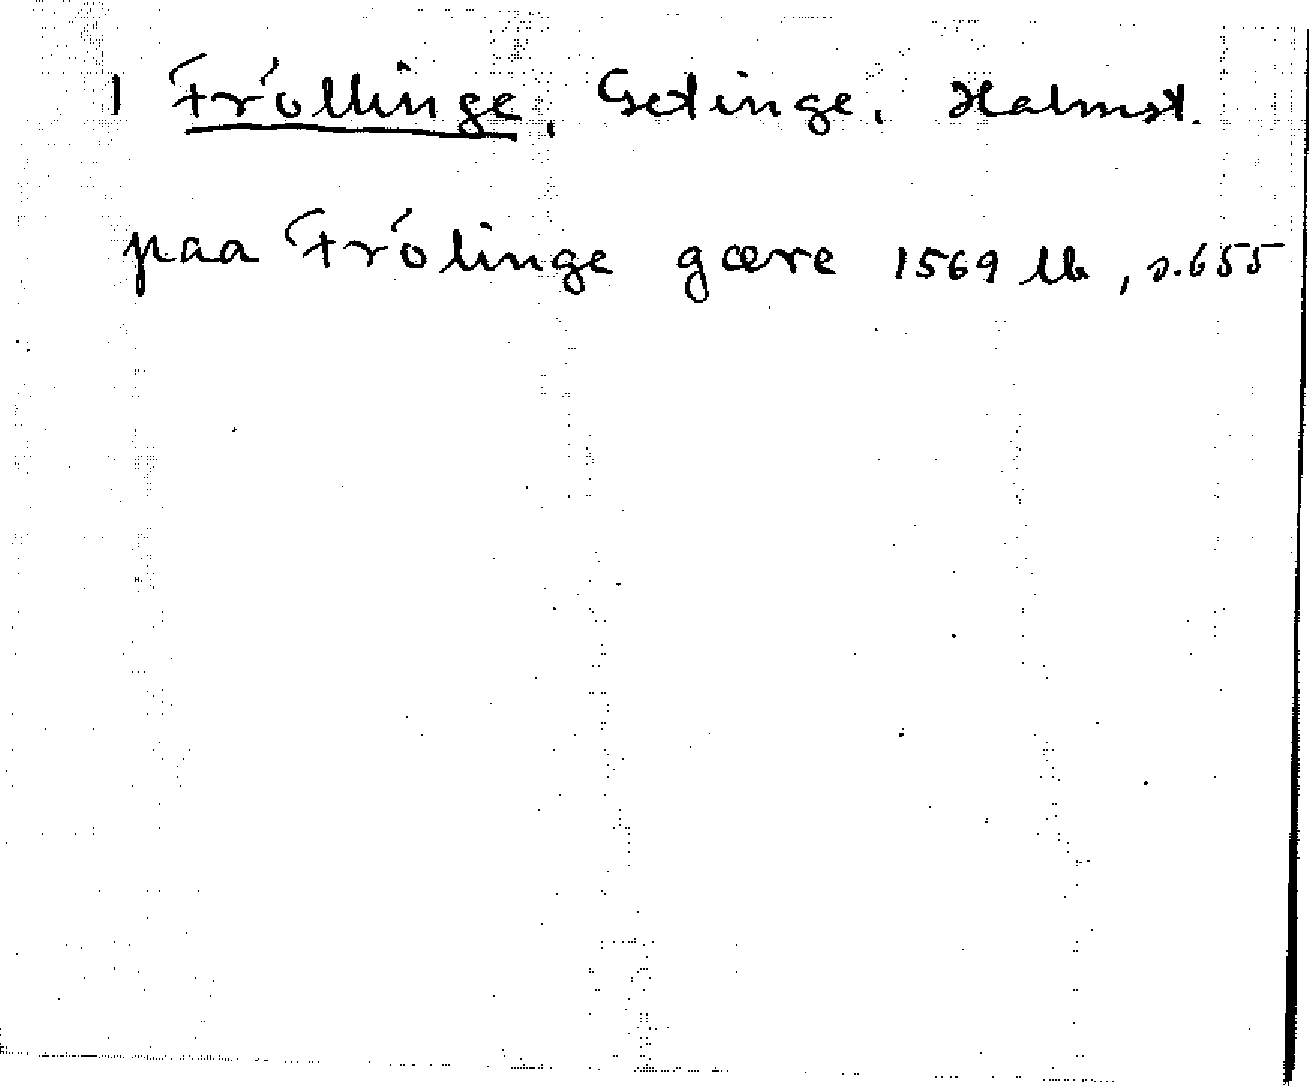 1 Fröllinge, Getinge, Halmst.
paa Frölinge gære 1569 lb, s. 655